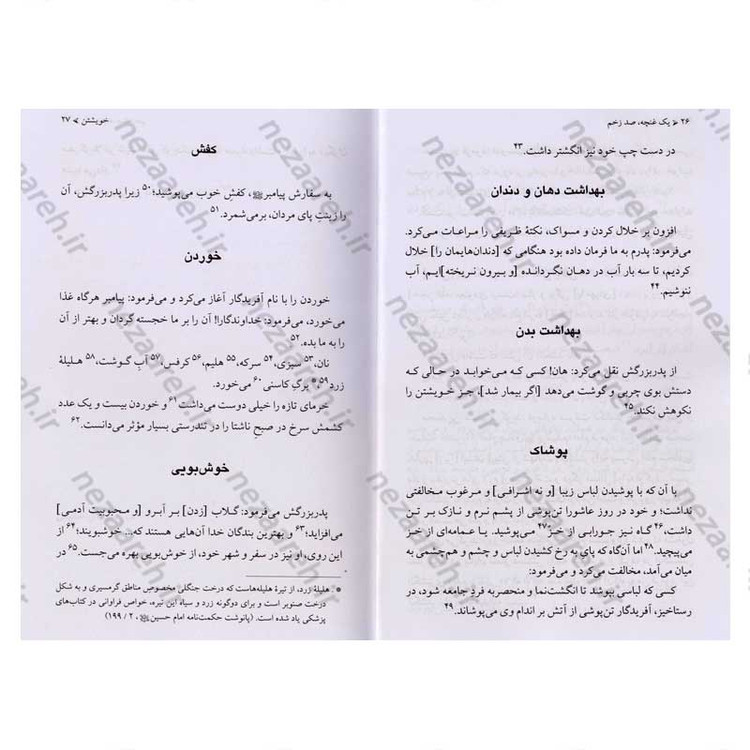 ۲۶ ⊰ یک غنچه، صد زخم
در دست چپ خود نیز انگشتر داشت.۲۳
بهداشت دهان و دندان
افزون بر خلال کردن و مسواک، نکتهٔ ظریفی را مراعات می‌کرد.
می‌فرمود: پدرم به ما فرمان داده بود هنگامی که [دندان‌هایمان را] خلال
کردیم، تا سه بار آب در دهان نگردانده [و بیرون نریخته]ایم، آب
ننوشیم.۲۴
بهداشت بدن
از پدربزرگش نقل می‌کرد: هان! کسی که می‌خوابد در حالی که
دستش بوی چربی و گوشت می‌دهد [اگر بیمار شد]، جز خویشتن را
نکوهش نکند.۲۵
پوشاک
با آن که با پوشیدن لباس زیبا [و نه اشرافی] و مرغوب مخالفتی
نداشت؛ و خود در روز عاشورا تن‌پوشی از پشم نرم و نازک بر تن
داشت،۲۶ گاه نیز جورابی از خز۲۷ می‌پوشید. یا عمامه‌ای از خز
می‌پیچید.۲۸ اما آن‌گاه که پایِ به رخ کشیدن لباس و چشم و هم‌چشمی به
میان می‌آمد، مخالفت می‌کرد و می‌فرمود:
کسی که لباسی بپوشد تا انگشت‌نما و منحصربه فردِ جامعه شود، در
رستاخیز، آفریدگار تن‌پوشی از آتش بر اندام وی می‌پوشاند.۴۹
خویشتن ⊱ ۲۷
کفش
به سفارش پیامبرﷺ، کفشِ خوب می‌پوشید؛۵۰ زیرا پدربزرگش، آن
را زینتِ پای مردان، برمی‌شمرد.۵۱
خوردن
خوردن را با نام آفریدگار آغاز می‌کرد و می‌فرمود: پیامبر هرگاه غذا
می‌خورد، می‌فرمود: خداوندگارا! آن را بر ما خجسته گردان و بهتر از آن
را به ما بده.۵۲
نان،۵۳ سبزی،۵۴ سرکه،۵۵ هلیم،۵۶ کرفس،۵۷ آبِ گوشت،۵۸ هلیلهٔ
زرد۵۹،* برگِ کاسنی۶۰ می‌خورد.
خرمای تازه را خیلی دوست می‌داشت۶۱ و خوردن بیست و یک عدد
کشمش سرخ در صبحِ ناشتا را در تندرستی بسیار مؤثر می‌دانست.۶۲
خوش‌بویی
پدربزرگش می‌فرمود: گلاب [زدن] بر آبرو [و محبوبیت آدمی]
می‌افزاید؛۶۳ و بهترین بندگان خدا آن‌هایی هستند که... خوشبویند؛۶۴ از
این روی، او نیز در سفر و شهر خود، از خوش‌بویی بهره می‌جست.۶۵ در
* هلیلهٔ زرد، از تیرهٔ هلیله‌هاست که درخت جنگلی مخصوصِ مناطق گرمسیری و به شکل
درخت صنوبر است و برای دوگونه زرد و سیاه این تیره، خواص فراوانی در کتاب‌های
پزشکی یاد شده است. (پانوشت حکمت‌نامه امام حسین، ۲۰ / ۱۹۹)
nezaareh.ir